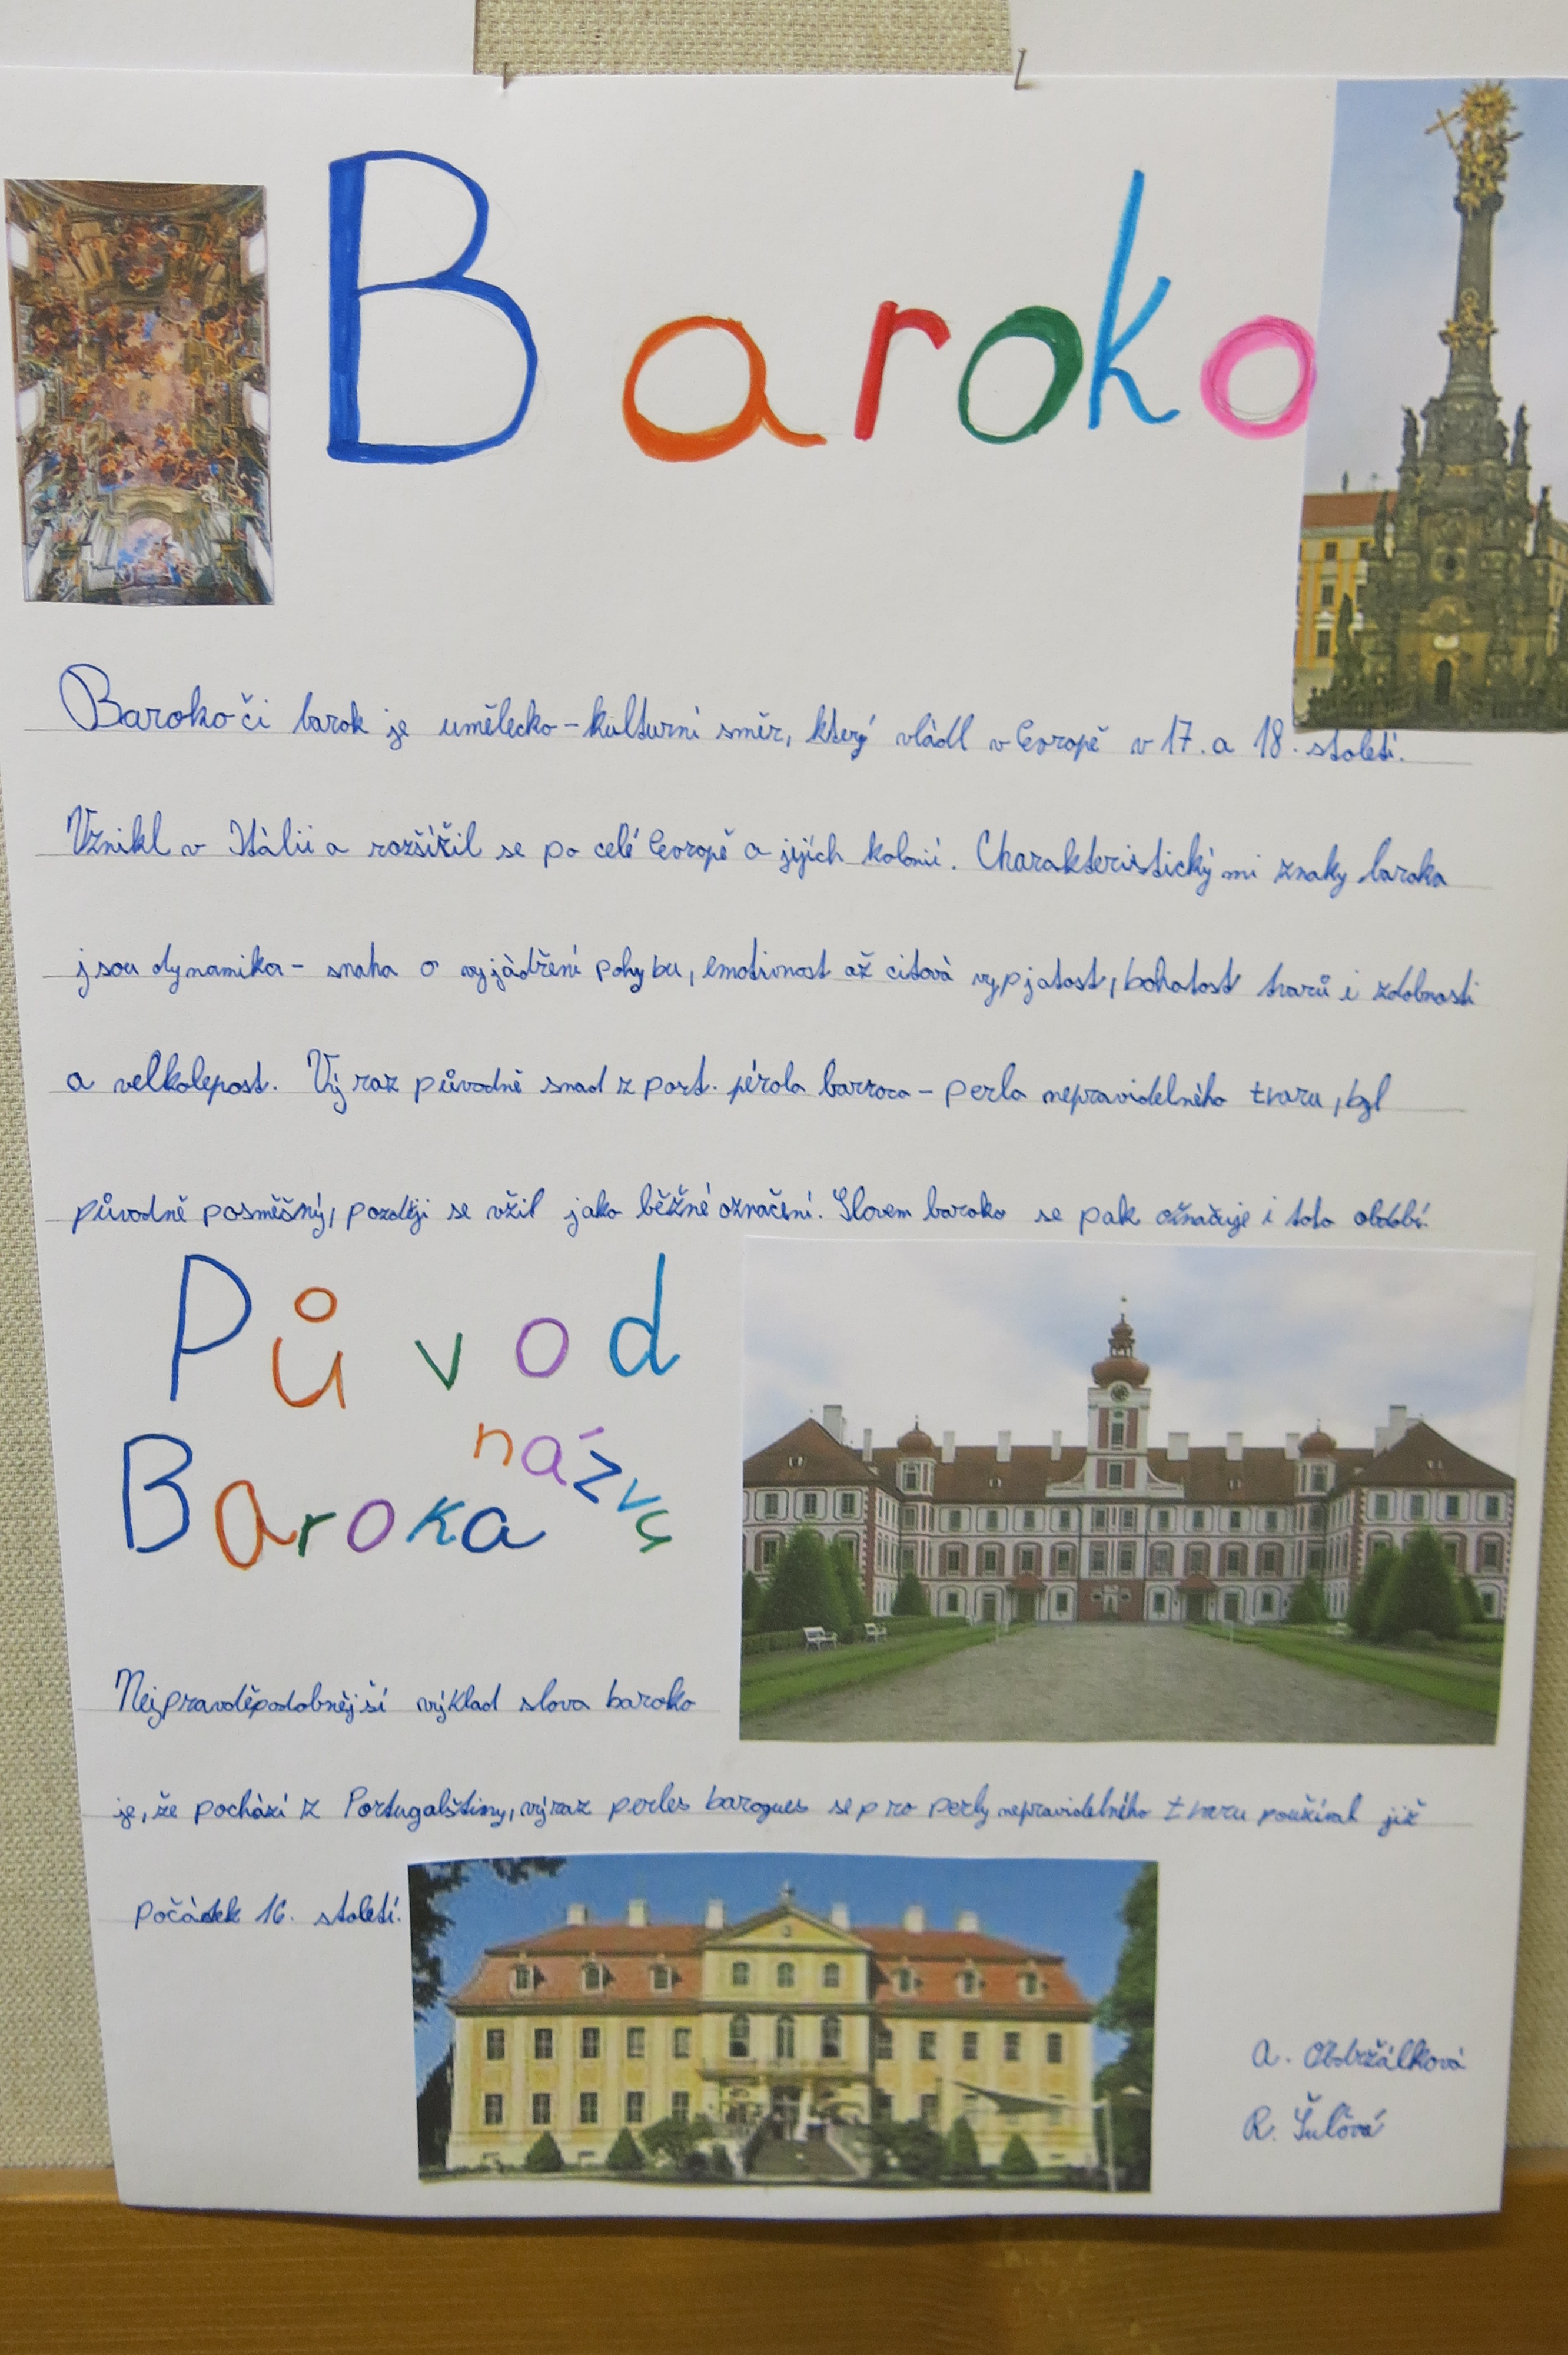 Baroko
Baroko či barok je umělecko-kulturní směr, který vládl v Evropě v 17. a 18. století.
Vznikl v Itálii a rozšířil se po celé Evropě a jejích kolonií. Charakteristickými znaky baroka
jsou dynamika - snaha o vyjádření pohybu, emotivnost až citová vypjatost, bohatost tvarů i zdobnosti
a velkolepost. Výraz původně snad z port. pérola barroca - perla nepravidelného tvaru, byl
původně posměšný, později se vžil jako běžné označení. Slovem baroko se pak označuje i toto období.
Původ
názvu
Baroka
Nejpravděpodobnější výklad slova baroko
je, že pochází z Portugalštiny, výraz perles baroques se pro perly nepravidelného tvaru používal již
počátek 16. století.
A. Obdržálková
R. Šulová